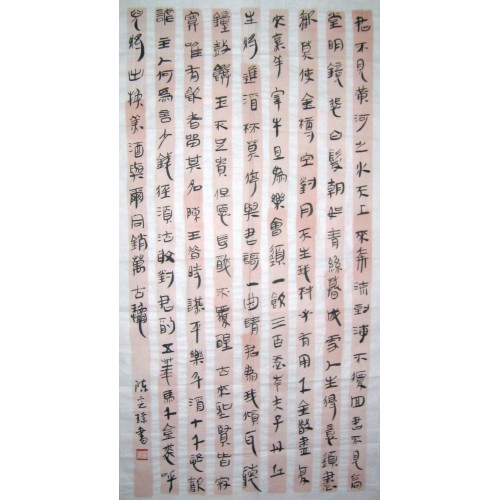 君不見黃河之水天上來奔流到海不復回君不見高
堂明鏡悲白髮朝如青絲暮成雪人生得意須盡
歡莫使金樽空對月天生我材必有用千金散盡復
來烹羊宰牛且為樂會須一飲三百盃岑夫子丹丘
生將進酒杯莫停與君謌一曲請君為我傾耳聽
鐘鼓饌玉不足貴但願長醉不覆醒古來聖賢皆寂
寞唯有飲者留其名陳王昔時讌平樂斗酒十千恣歡
謔主人何為言少錢徑須沽取對君酌五華馬千金裘呼
兒將出換美酒與爾同銷萬古愁
陳立書